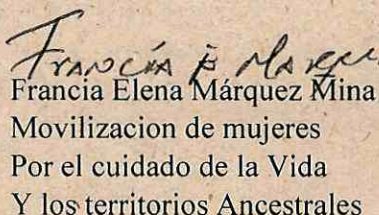 Francia E Marqu
Francia Elena Márquez Mina
Movilizacion de mujeres
Por el cuidado de la Vida
Y los territorios Ancestrales